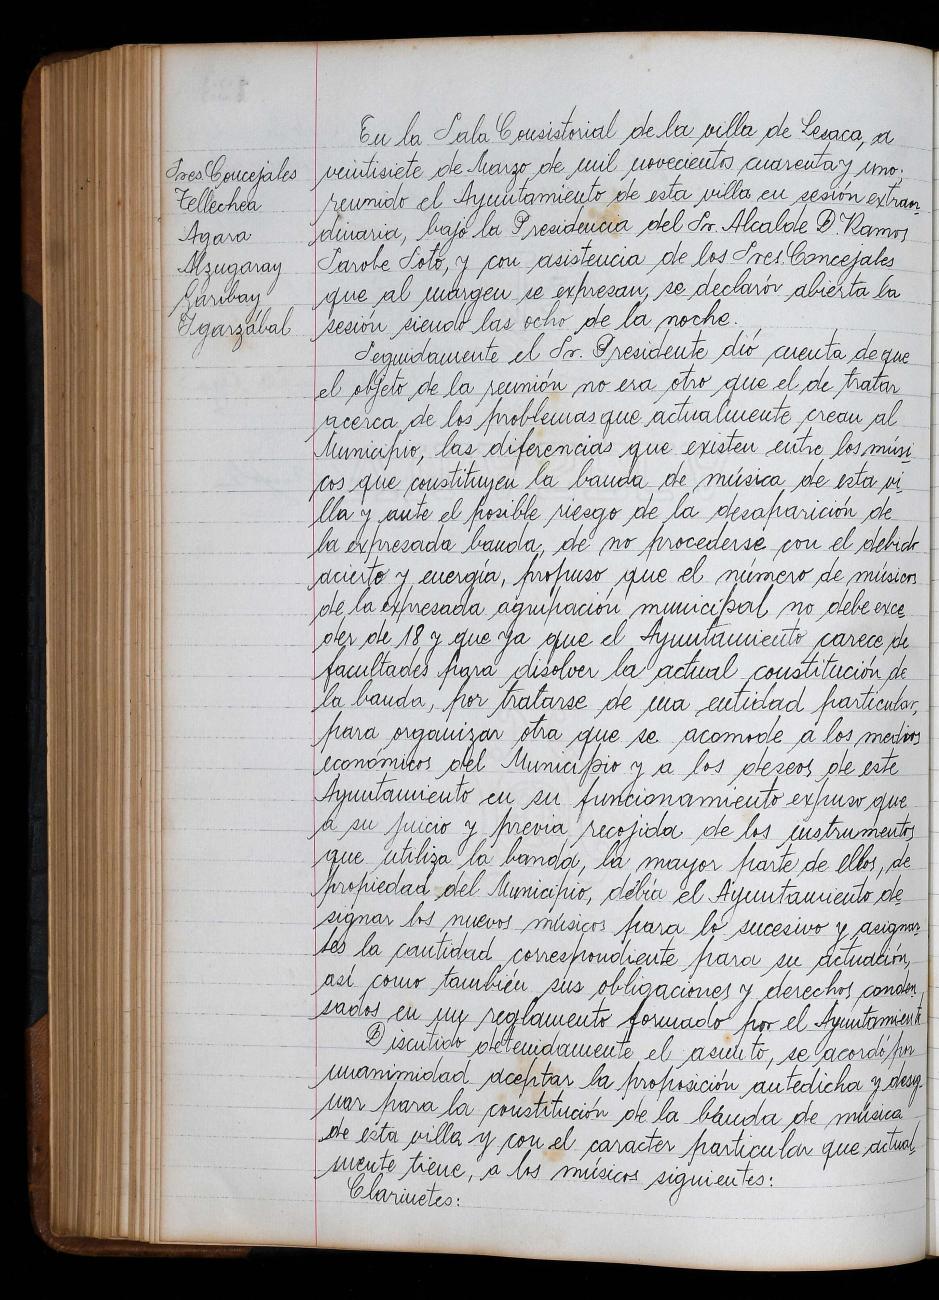 Sres. Concejales
Tellechea
Agara
Mzugaray
Garibay
Igarzábal
En la Sala Consistorial de la villa de Lesaca, a
veintisiete de Marzo de mil novecientos cuarenta y uno.
reunido el Ayuntamiento de esta villa en sesión extraor-
dinaria, bajo la Presidencia del Sr. Alcalde D. Ramos
Sarobe Soto, y con asistencia de los Sres. Concejales
que al margen se expresan, se declaró abierta la
sesión siendo las ocho de la noche.
Seguidamente el Sr. Presidente dió cuenta de que
el objeto de la reunión no era otro que el de tratar
acerca de los problemas que actualmente crean al
Municipio, las diferencias que existen entre los músi-
cos que constituyen la banda de música de esta vi-
lla y ante el posible riesgo de la desaparición de
la expresada banda, de no procederse con el debido
acierto y energía, propuso que el número de músicos
de la expresada agrupación municipal no debe exce-
der de 18 y que ya que el Ayuntamiento carece de
facultades para disolver la actual constitución de
la banda, por tratarse de una entidad particular,
para organizar otra que se acomode a los medios
económicos del Municipio y a los deseos de este
Ayuntamiento en su funcionamiento expuso que
a su juicio y previa recojida de los instrumentos
que utiliza la banda, la mayor parte de ellos, de
propiedad del Municipio, debía el Ayuntamiento de-
signar los nuevos músicos para lo sucesivo y asignar-
les la cantidad correspondiente para su actuación,
así como también sus obligaciones y derechos conden-
sados en un reglamento formado por el Ayuntamiento.
Discutido detenidamente el asunto, se acordó por
unanimidad aceptar la proposición antedicha y desig-
nar para la constitución de la banda de música
de esta villa y con el caracter particular que actual-
mente tiene, a los músicos siguientes:
Clarinetes: